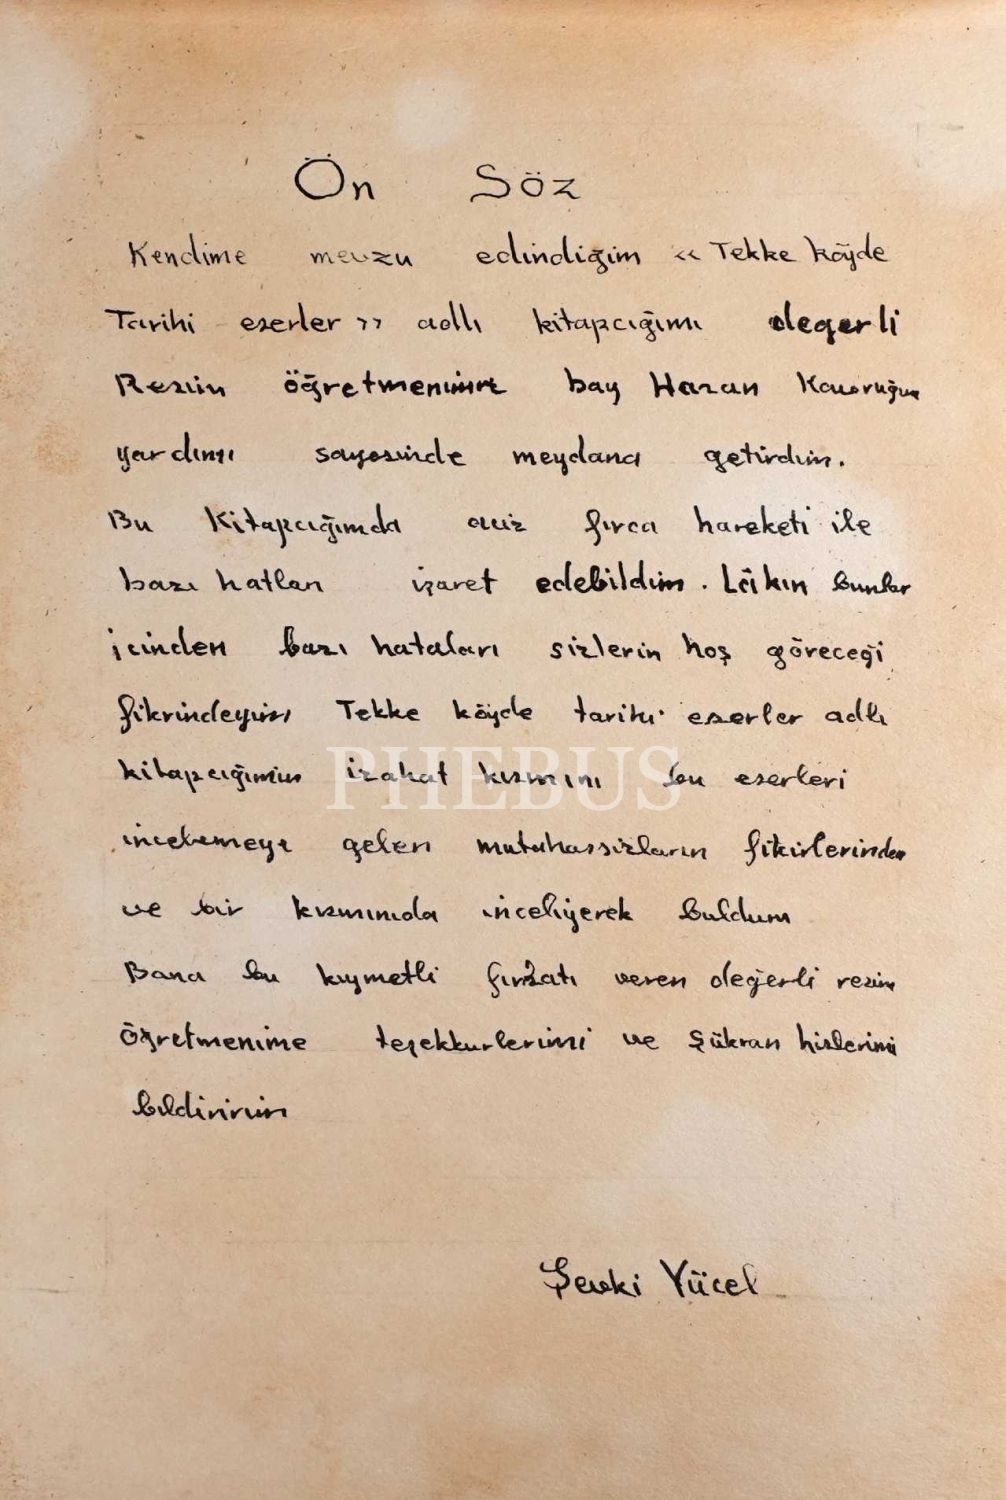 Ön Söz
Kendime mevzu edindiğim « Tekke köyde
Tarihi eserler » adlı kitapcığımı degerli
Resim öğretmenimiz bay Hasan
yardımı sayesinde meydana getirdim.
Bu Kitapcığımda aciz fırca hareketi ile
bazı hatları işaret edebildim. Lâkin bunlar
içinden bazı hataları sizlerin hoş göreceği
fikrindeyim Tekke köyde tarihi eserler adlı
PHEBUS
kitapcığımın izahat kısmını bu eserleri
incelemeye gelen mutahassısların fikirlerinden
ve bir kısmınıda inceliyerek buldum
Bana bu kıymetli fırsatı veren değerli resim
öğretmenime teşekkurlerimi ve şükran hislerimi
bildiririm
Şevki Yücel